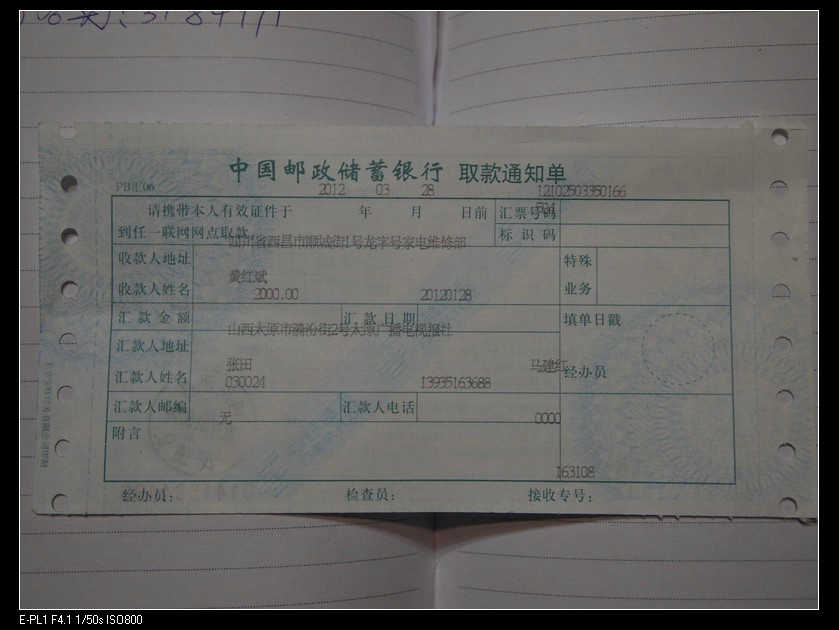 中国邮政储蓄银行 取款通知单
PB汇06
2012 03 28 12102503350166
请携带本人有效证件于 年 月 日前 汇票号码 534
到任一联网网点取款 标识码
四川省西昌市顺城街1号龙字号家电维修部
收款人地址 特殊
黄红斌
收款人姓名 业务
2000.00 20120128
汇款金额 汇款日期 填单日戳
山西太原市 街2号太原广播电视报社
汇款人地址
张田 马建红
汇款人姓名 经办员
030024 13935163688
汇款人邮编 汇款人电话
无 0000
附言
163108
经办员: 检查员: 接收专号:
E-PL1 F4.1 1/50s ISO800